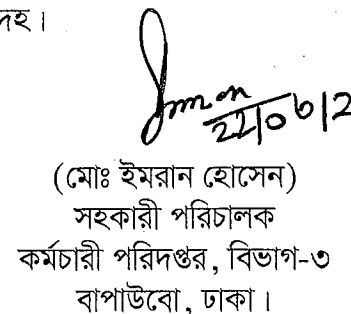 দহ।
Imran
(মোঃ ইমরান হোসেন)
সহকারী পরিচালক
কর্মচারী পরিদপ্তর, বিভাগ-৩
বাপাউবো, ঢাকা।